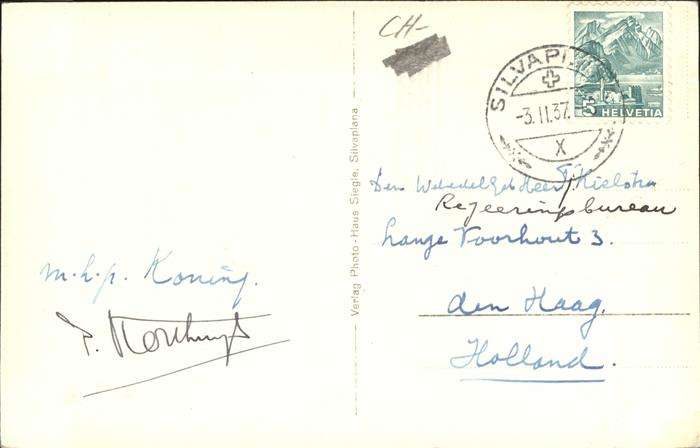 CH-
SILVAPL
-3.II.37.
X
5 HELVETIA
Den WelEdelGeb Heer Kielstra
Regeeringsbureau
Lange Voorhout 3.
den Haag.
Holland.
Verlag Photo-Haus Siegle, Silvaplana
m.h.p. Koning.
P.